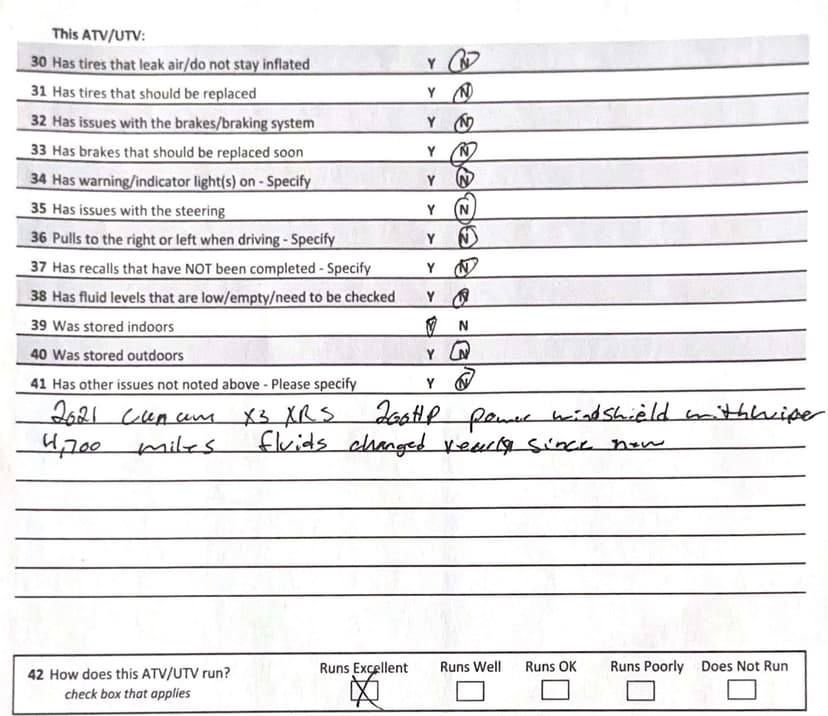 This ATV/UTV:
30 Has tires that leak air/do not stay inflated Y N
31 Has tires that should be replaced Y N
32 Has issues with the brakes/braking system Y N
33 Has brakes that should be replaced soon Y N
34 Has warning/indicator light(s) on - Specify Y N
35 Has issues with the steering Y N
36 Pulls to the right or left when driving - Specify Y N
37 Has recalls that have NOT been completed - Specify Y N
38 Has fluid levels that are low/empty/need to be checked Y N
39 Was stored indoors Y N
40 Was stored outdoors Y N
41 Has other issues not noted above - Please specify Y N
2021 Can am X3 XRS 200HP power windshield with wiper
4,700 miles fluids changed yearly since new
42 How does this ATV/UTV run? Runs Excellent Runs Well Runs OK Runs Poorly Does Not Run
check box that applies